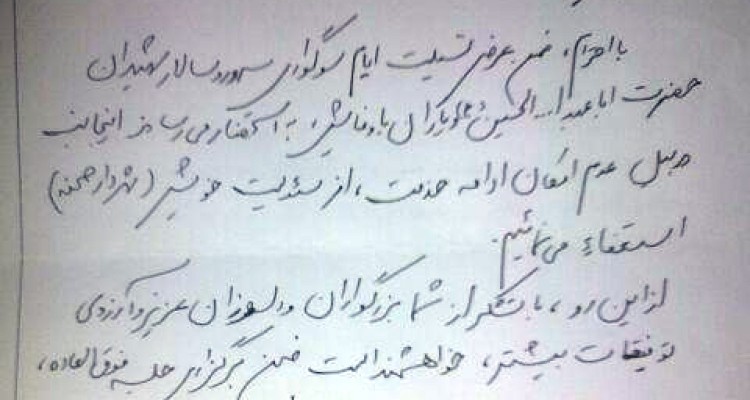 با احترام، ضمن عرض تسلیت ایام سوگواری سرور و سالار شهیدان
حضرت اباعبدا... الحسین (ع) و یاران باوفایش، به استحضار می رساند اینجانب
بدلیل عدم امکان ادامه خدمت، از مسئولیت خویش (شهردار صحنه)
استعفاء می نمائیم.
از این رو، با تشکر از شما بزرگواران و دلسوزان عزیز و آرزوی
توفیقات بیشتر، خواهشمند است ضمن برگزاری جلسه فوق العاده،